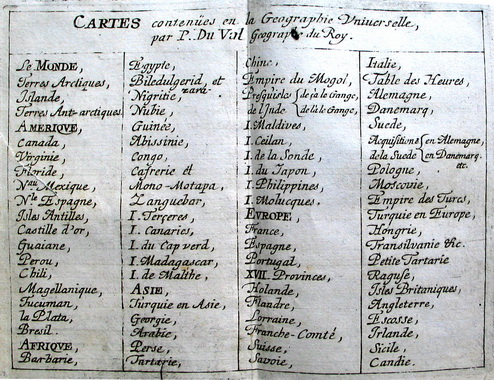 CARTES contenües en la Geographie Vniverselle,
par P. Du Val Geographe du Roy.
Le MONDE,
Terres Arctiques,
Islande,
Terres Ant-arctiques
AMERIQVE,
Canada,
Virginie,
Floride,
Nau. Mexique,
Nle. Espagne,
Isles Antilles,
Castille d'or,
Guaiane,
Perou,
Chili,
Magellanique,
Tucuman,
la Plata,
Bresil.
AFRIQVE,
Barbarie,
Egypte,
Biledulgerid, et
zara
Nigritie,
Nubie,
Guinée,
Abissinie,
Congo,
Cafrerie et
Mono-Motapa,
Zanguebar,
I. Terçeres,
I. Canaries,
I. du Cap verd,
I. Madagascar,
I. de Malthe,
ASIE,
Turquie en Asie,
Georgie,
Arabie,
Perse,
Tartarie,
Chine,
Empire du Mogol,
Presqu'isles de ça le Gange,
de l'Inde de là le Gange,
I. Maldives,
I. Ceilan,
I. de la Sonde,
I. du Japon,
I. Philippines,
I. Molucques,
EVROPE,
France,
Espagne,
Portugal,
XVII. Provinces,
Holande,
Flandre,
Lorraine,
Franche-Comté,
Suisse,
Savoie,
Italie,
Table des Heures,
Alemagne,
Danemarq,
Suede,
Acquisitions en Alemagne,
de la Suede en Danemarq.
etc.
Pologne,
Moscovie,
Empire des Turcs,
Turquie en Europe,
Hongrie,
Transilvanie &c.
Petite Tartarie
Raguse,
Isles Britaniques,
Angleterre,
Escosse,
Irlande,
Sicile,
Candie.